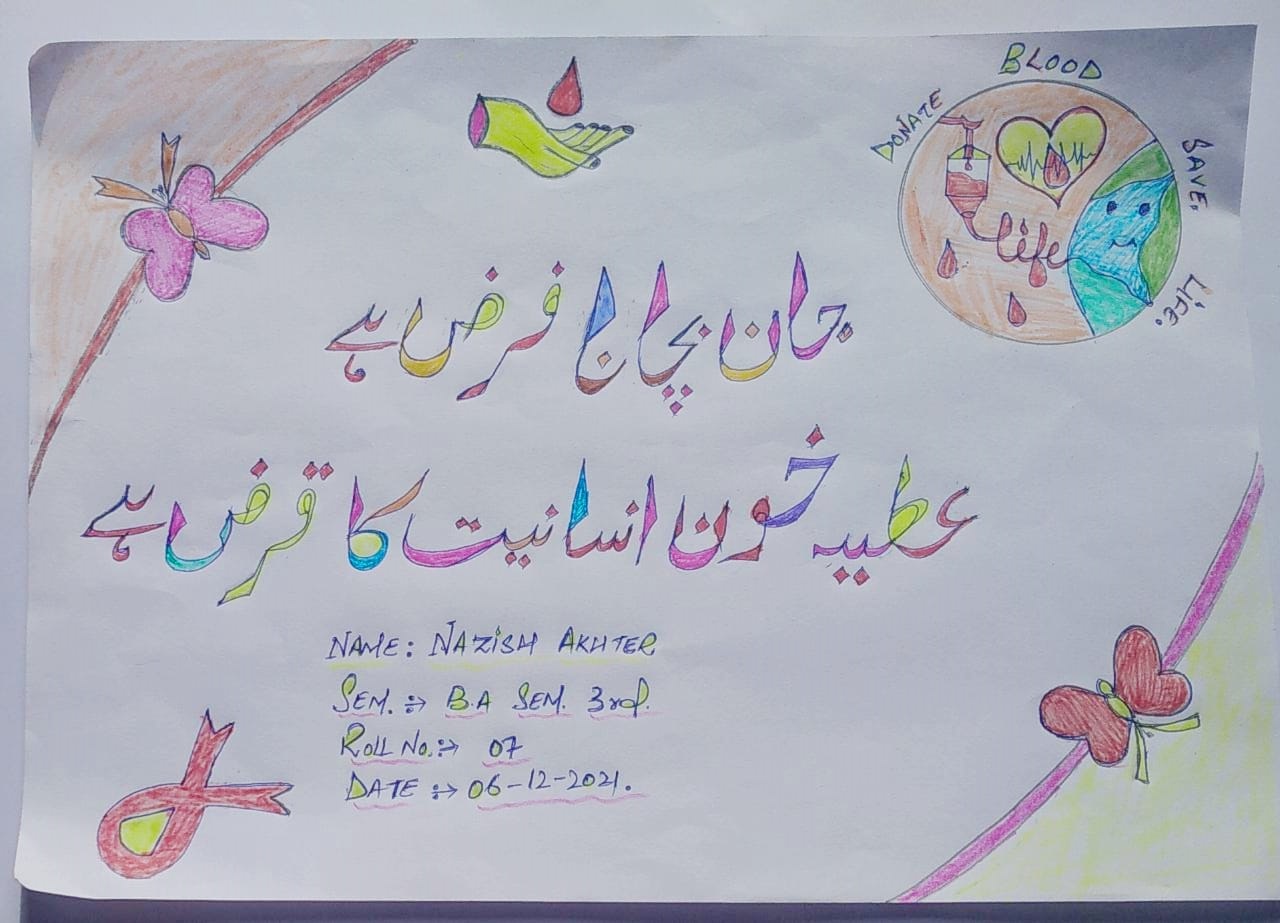 DONATE BLOOD SAVE, LiFE.
life
جان بچانا فرض ہے
عطیہ خون انسانیت کا قرض ہے
NAME: NAZISH AKHTER
SEM. :-> B.A SEM. 3rd.
ROLL No. :-> 07
DATE :-> 06-12-2021.